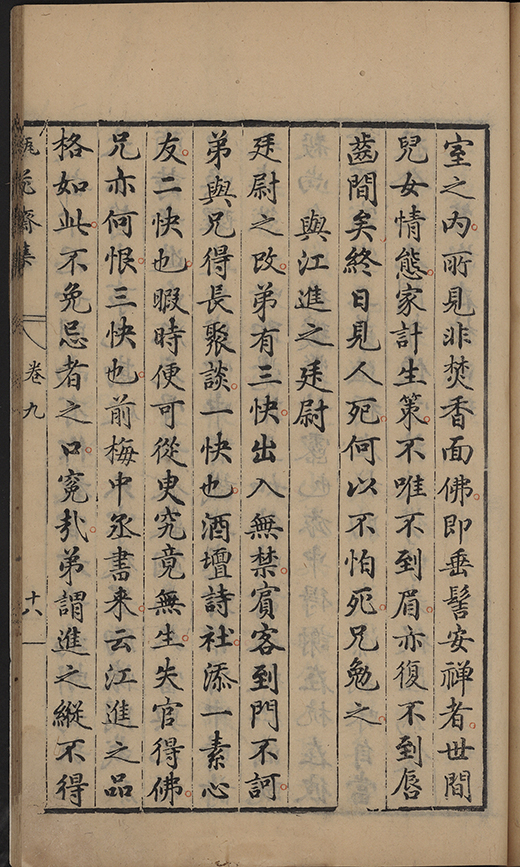 室之內所見非焚香面佛即垂髫安禪者世間
兒女情態家計生策不唯不到眉亦復不到唇
齒間矣終日見人死何以不怕死兄勉之
與江進之廷尉
廷尉之改弟有三快出入無禁賓客到門不訶
弟與兄得長聚談一快也酒壇詩社添一素心
友二快也暇時便可從臾究竟無生失官得佛
兄亦何恨三快也前梅中丞書來云江進之品
格如此不免忌者之口冤哉弟謂進之縱不得
瓶花齋集
卷九
十八